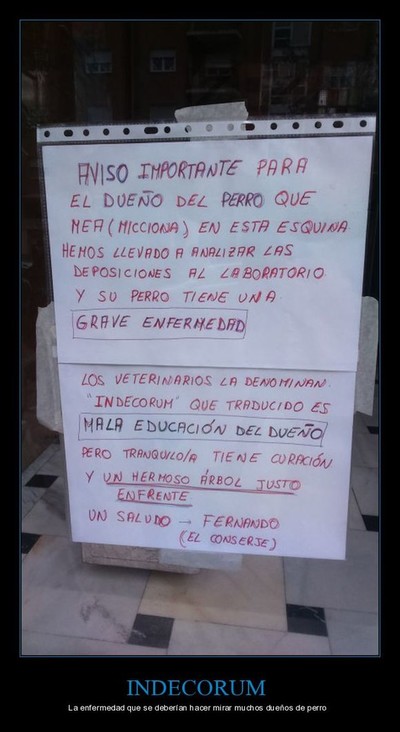 AVISO IMPORTANTE PARA
EL DUEÑO DEL PERRO QUE
MEA (MICCIONA) EN ESTA ESQUINA.
HEMOS LLEVADO A ANALIZAR LAS
DEPOSICIONES AL LABORATORIO
Y SU PERRO TIENE UNA
GRAVE ENFERMEDAD
LOS VETERINARIOS LA DENOMINAN
"INDECORUM" QUE TRADUCIDO ES
MALA EDUCACIÓN DEL DUEÑO
PERO TRANQUILO/A TIENE CURACIÓN
Y UN HERMOSO ÁRBOL JUSTO
ENFRENTE
UN SALUDO → FERNANDO
(EL CONSERJE)
INDECORUM
La enfermedad que se deberían hacer mirar muchos dueños de perro